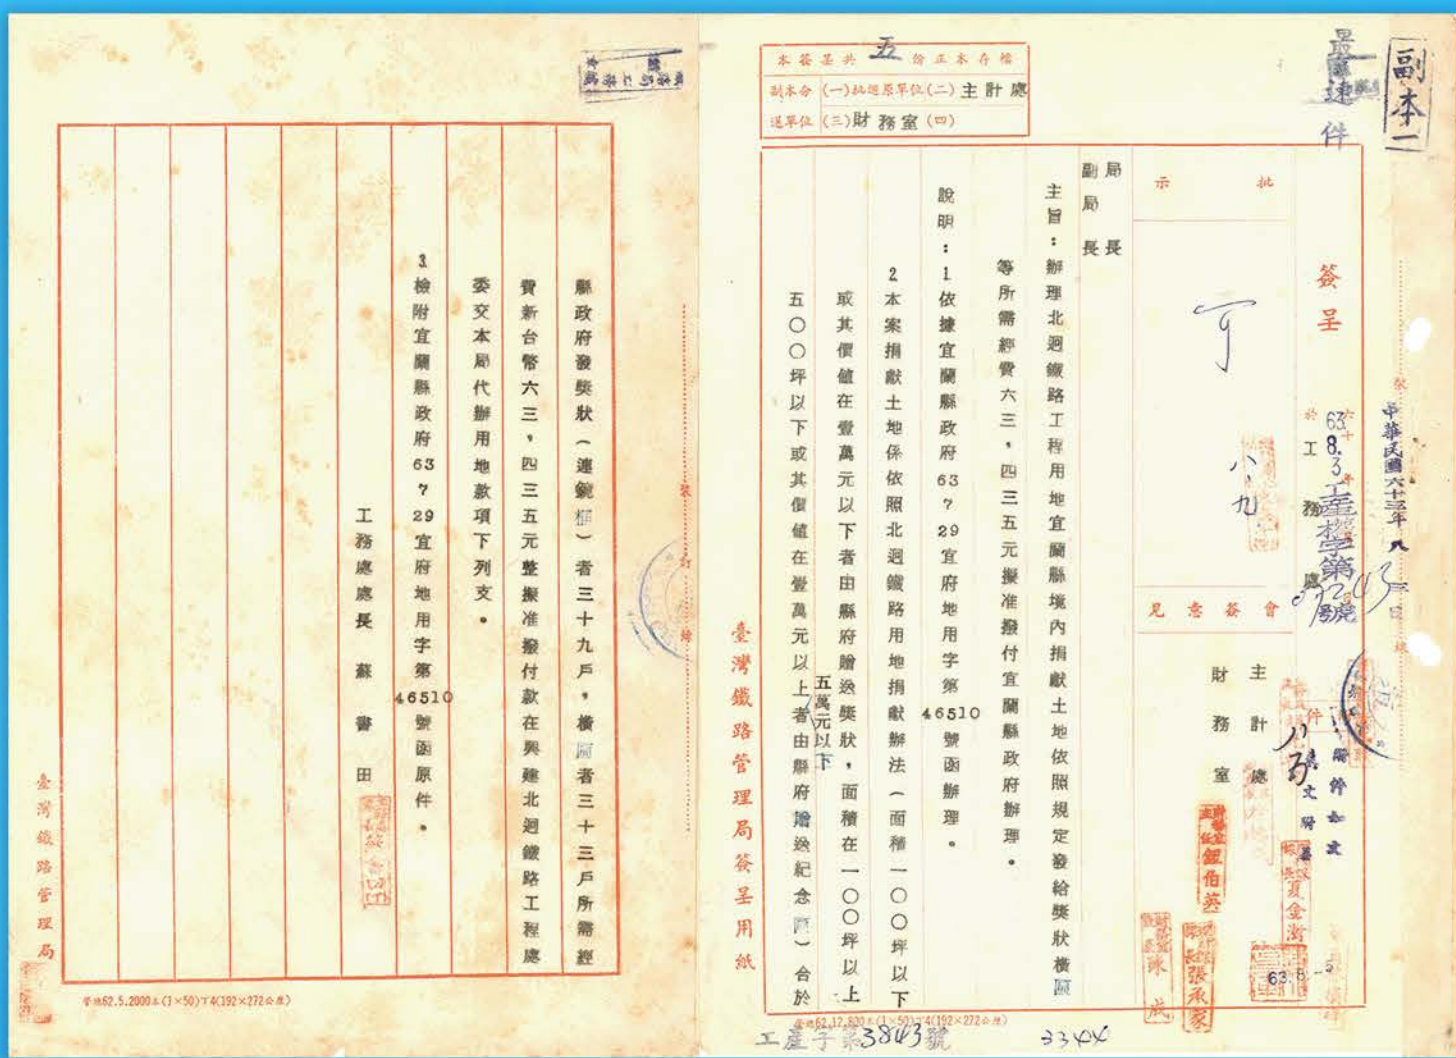 副本一
最速件
本簽呈共五份正本存檔
副本分送單位(一)批迴原單位(二)主計處
(三)財務室(四)
中華民國六十三年八月三日
63.8.3工產權字第
號
簽呈
於工務處
批示
八、九
會簽意見
主計處
財務室
夏金澍
鈕伯英
張承家
陳成
63.8.5
局長
副局長
主旨：辦理北迴鐵路工程用地宜蘭縣境內捐獻土地依照規定發給獎狀橫匾
等所需經費六三，四三五元擬准撥付宜蘭縣政府辦理。
說明：1依據宜蘭縣政府63 7 29宜府地用字第46510號函辦理。
2本案捐獻土地係依照北迴鐵路用地捐獻辦法（面積一〇〇坪以下
或其價值在壹萬元以下者由縣府贈送獎狀，面積在一〇〇坪以上
五〇〇坪以下或其價值在壹萬元以上五萬元以下者由縣府贈送紀念匾）台於
臺灣鐵路管理局簽呈用紙
工產字第3843號
3344
裝訂線
縣政府發獎狀（連鏡框）者三十九戶，橫匾者三十三戶所需經
費新台幣六三，四三五元整擬准撥付款在興建北迴鐵路工程處
委交本局代辦用地款項下列支。
3檢附宜蘭縣政府63 7 29宜府地用字第46510號函原件。
工務處處長 蘇書田
臺灣鐵路管理局